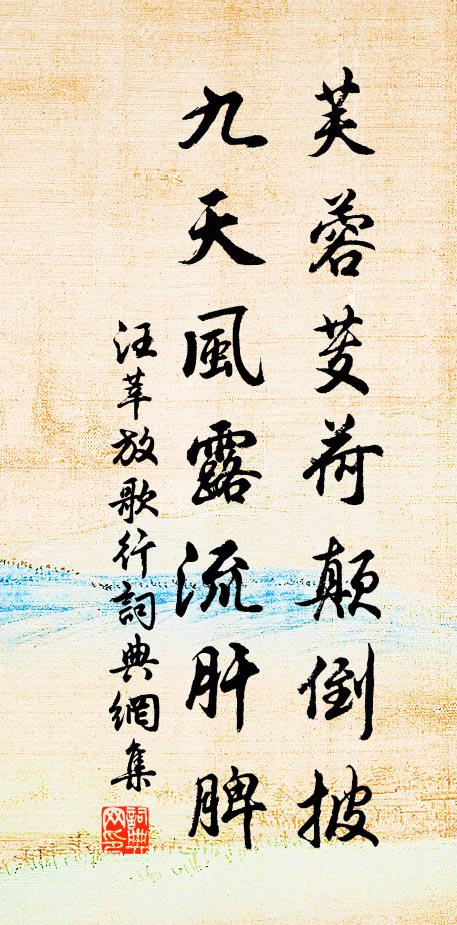 芙蓉芰荷颠倒披
九天風露流肝脾
汪莘放歌行詞典網集